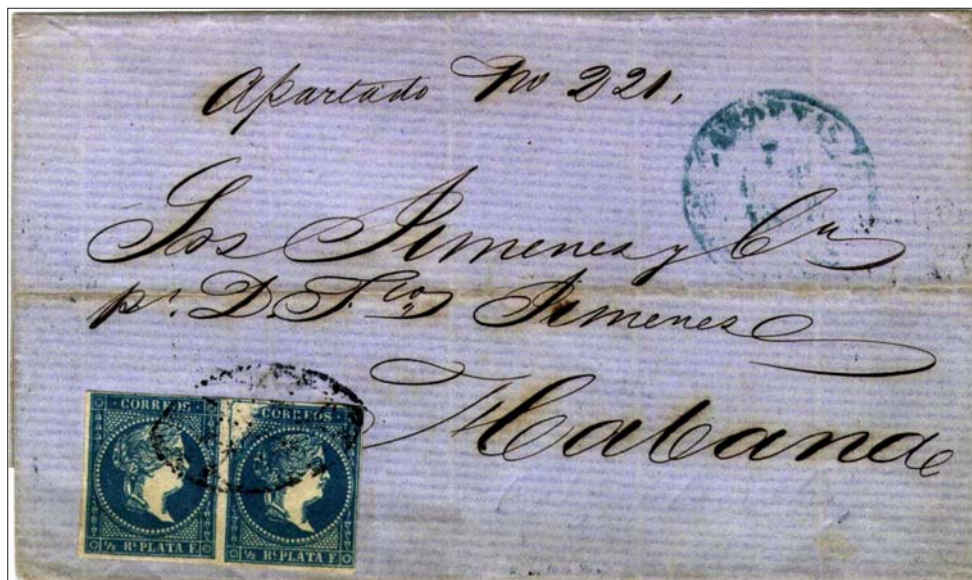 Apartado No 221,
Sres Jimenes y Ca
pr. D. Fco Jimenes
Habana
CORREOS CORREOS
½ Rl. PLATA F. ½ Rl. PLATA F.